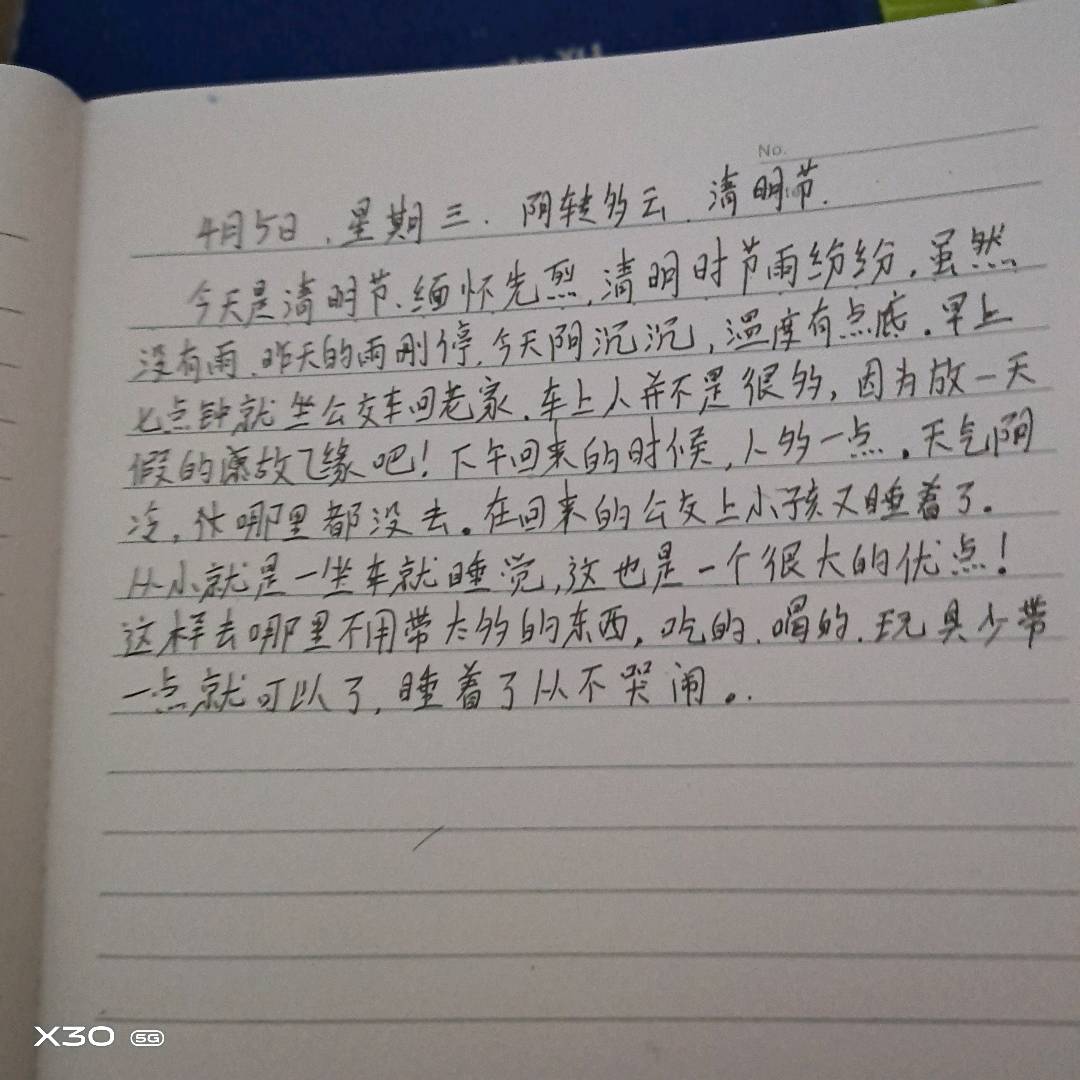 No.
4月5日、星期三. 阴转多云. 清明节.
今天是清明节、缅怀先烈,清明时节雨纷纷.虽然
没有雨.昨天的雨刚停.今天阴沉沉,温度有点底.早上
七点钟就坐公交车回老家.车上人并不是很多,因为放一天
假的原故飞缘吧!下午回来的时候,人多一点.天气阴
冷,哪里都没去。在回来的公交上小孩又睡着了.
从小就是一坐车就睡觉,这也是一个很大的优点!
这样去哪里不用带太多的东西,吃的.喝的.玩具少带
一点就可以了,睡着了从不哭闹。
X30 5G